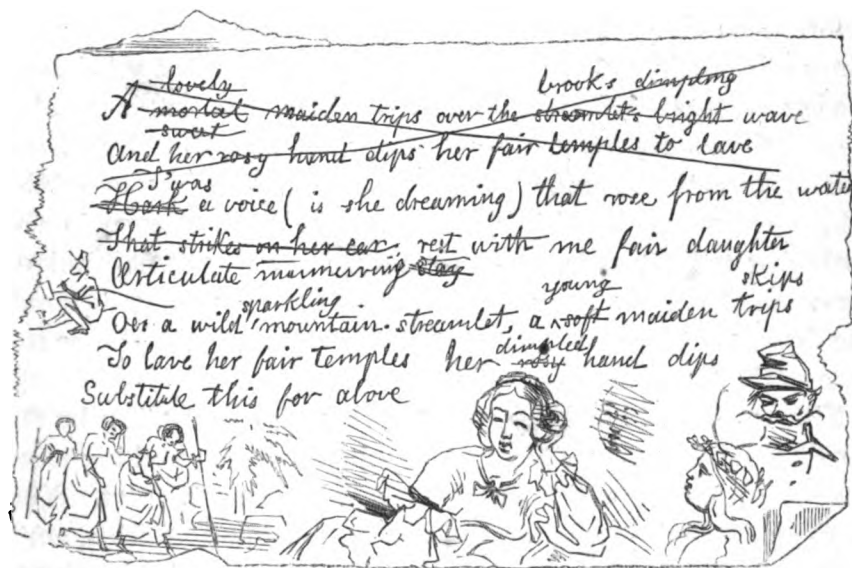 lovely brooks dimpling
A mortal maiden trips over the streamlet's bright wave
sweet
And her rosy hand dips her fair temples to lave
T'was
Hark a voice ( is she dreaming ) that rose from the wate
That strikes on her ear, rest with me fair daughter
Articulate murmuring stay
sparkling young skips
Oer a wild mountain streamlet, a soft maiden trips
dimpled
To lave her fair temples her rosy hand dips
Substitute this for above